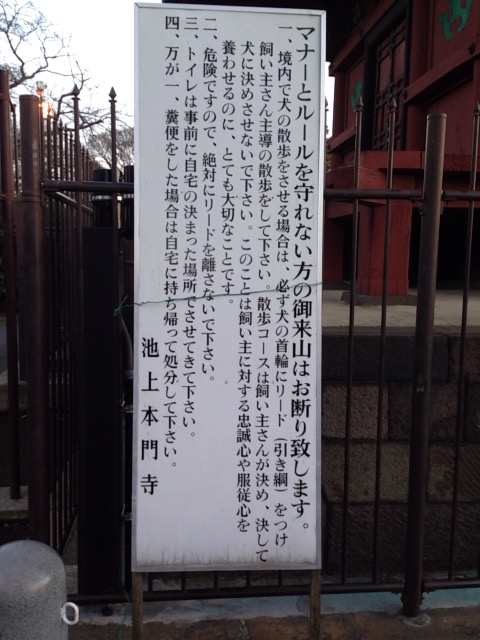 マナーとルールを守れない方の御来山はお断り致します。
一、境内で犬の散歩をさせる場合は、必ず犬の首輪にリード（引き綱）をつけ
飼い主さん主導の散歩をして下さい。散歩コースは飼い主さんが決め、決して
犬に決めさせないで下さい。このことは飼い主に対する忠誠心や服従心を
養わせるのに、とても大切なことです。
二、危険ですので、絶対にリードを離さないで下さい。
三、トイレは事前に自宅の決まった場所でさせてきて下さい。
四、万が一、糞便をした場合は自宅に持ち帰って処分して下さい。
池上本門寺